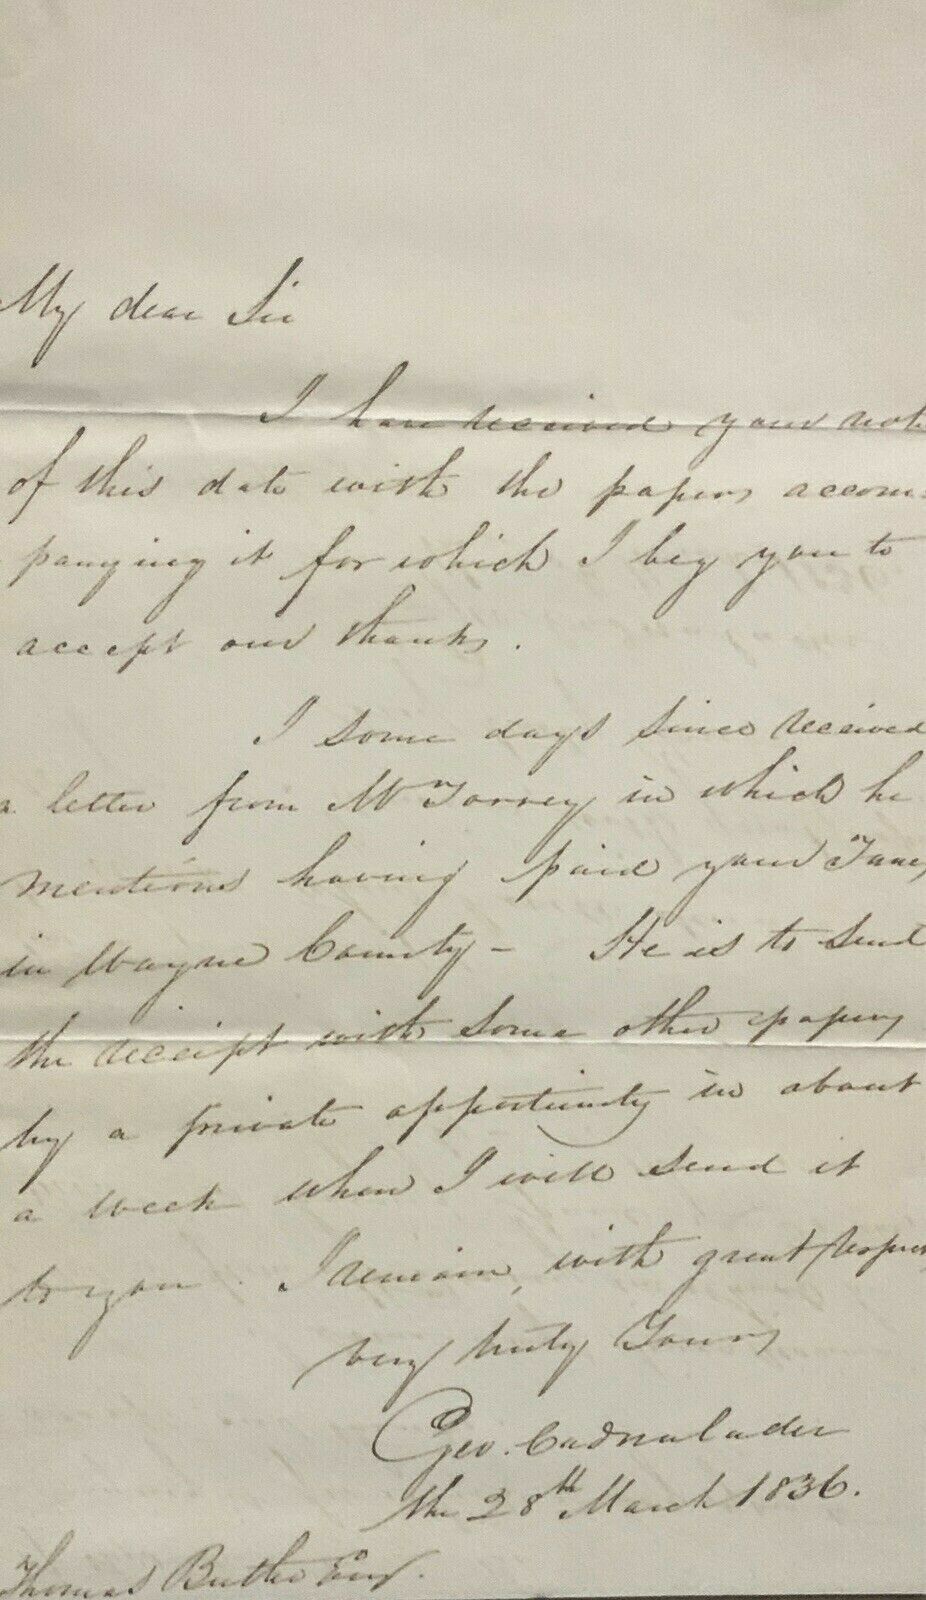 My dear Sir
I have received your note
of this date with the papers accom-
panying it for which I beg you to
accept our thanks.
I some days since received
a letter from Mr Torrey in which he
mentions having paid your Taxes
in Wayne County - He is to send
the receipt with some other papers
by a private opportunity in about
a week when I will send it
to you. I remain, with great respect
very truly Yours
Geo. Cadwalader
the 28th March 1836.
Thomas Butler Esq.